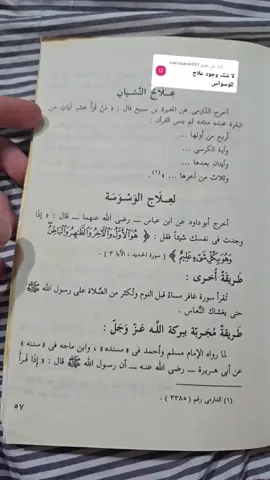 لا شك وجود علاج
للوسواس
عِلاجُ النِّسْيَانِ
أخرج الدَّارِمى عن المغيرة بن سبيع قال : « مَنْ قرأ عشر آياتٍ من
البقرة عنده منامه لم ينس القرآن :
أربع من أولها ...
وآية الكرسى ...
وآيتان بعدها ...
وثلاث من آخرها ... » (١) .
لِعِلاجِ الوَسْوَسَة
أخرج أبو داود عن ابن عباس ــ رضى الله عنهما ــ قال : « إذَا
وجدت فى نفسك شيئاً فقل : ﴿ هُوَ ٱلْأَوَّلُ وَٱلْآخِرُ وَٱلظَّٰهِرُ وَٱلْبَاطِنُ
وَهُوَ بِكُلِّ شَىْءٍ عَلِيمٌ ﴾ ( سورة الحديد ، الآية ٣ ) .
طَرِيقَةٌ أُخرى :
تُقرأ سورة غافر مساءً قبل النوم وتُكثر من الصَّلاة على رسول الله ﷺ
حتى يغشاك النُّعاس .
طَرِيقَةٌ مُجَرَّبَة ببركة اللَّـه عَزَّ وَجَلَّ :
لما رواه الإمام مسلم وأحمد فى « مسنده » ، وابن ماجه فى « سننه »
عن أبى هـريرة ــ رضى الله عنه ــ أن رسول الله ﷺ قال : « إذَا قَرأَ
(١) الدارمى رقم ( ٣٣٨٥ ) .
٥٧